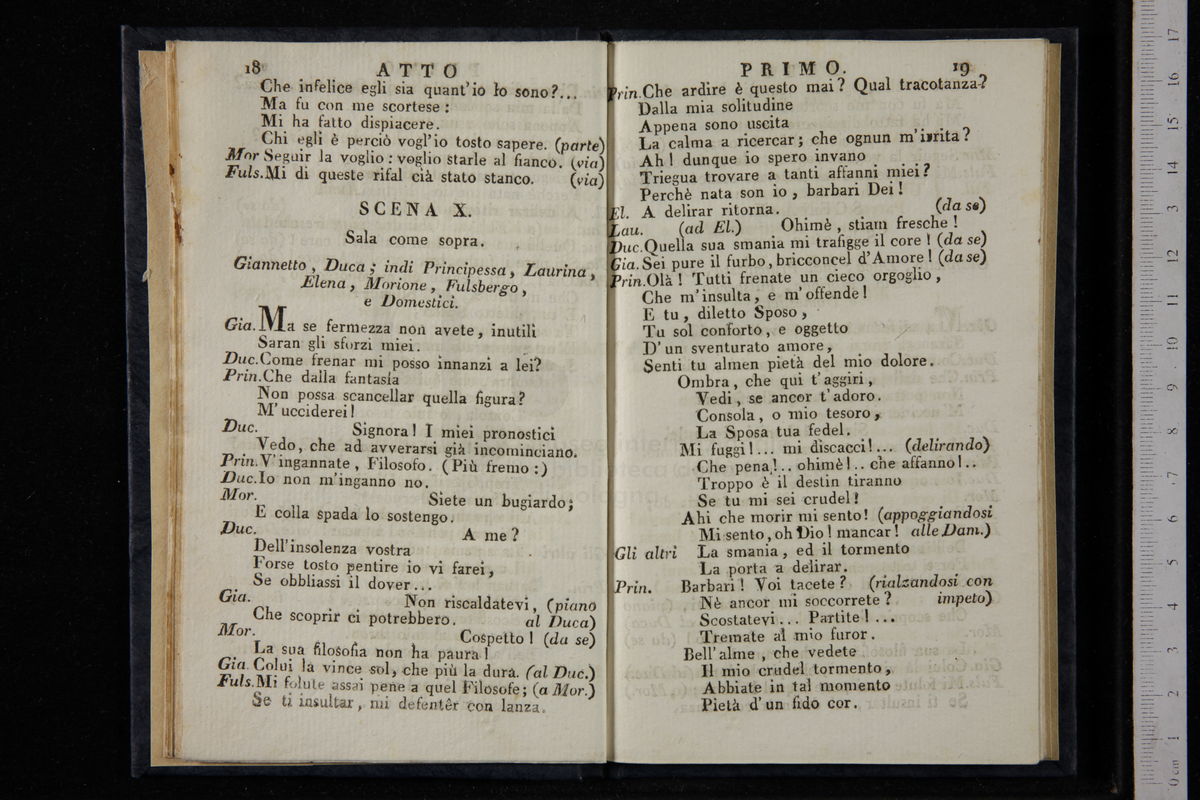 18 ATTO
Che infelice egli sia quant'io lo sono?...
Ma fu con me scortese:
Mi ha fatto dispiacere.
Chi egli è perciò vogl'io tosto sapere. (parte)
Mor Seguir la voglio: voglio starle al fianco. (via)
Fuls. Mi di queste rifal cià stato stanco. (via)
SCENA X.
Sala come sopra.
Giannetto, Duca; indi Principessa, Laurina,
Elena, Morione, Fulsbergo,
e Domestici.
Gia. Ma se fermezza non avete, inutili
Saran gli sforzi miei.
Duc. Come frenar mi posso innanzi a lei?
Prin. Che dalla fantasía
Non possa scancellar quella figura?
M'ucciderei!
Duc. Signora! I miei pronostici
Vedo, che ad avverarsi già incominciano.
Prin. V'ingannate, Filosofo. (Più fremo:)
Duc. Io non m'inganno no.
Mor. Siete un bugiardo;
E colla spada lo sostengo.
Duc. A me?
Dell'insolenza vostra
Forse tosto pentire io vi farei,
Se obbliassi il dover...
Gia. Non riscaldatevi, (piano
Che scoprir ci potrebbero. al Duca)
Mor. Cospetto! (da se)
La sua filosofia non ha paura!
Gia. Colui la vince sol, che più la dura. (al Duc.)
Fuls. Mi folute assai pene a quel Filosofe; (a Mor.)
Se ti insultar, mi defentêr con lanza.
PRIMO. 19
Prin. Che ardire è questo mai? Qual tracotanza?
Dalla mia solitudine
Appena sono uscita
La calma a ricercar; che ognun m'irrita?
Ah! dunque io spero invano
Triegua trovare a tanti affanni miei?
Perchè nata son io, barbari Dei!
El. A delirar ritorna. (da se)
Lau. (ad El.) Ohimè, stiam fresche!
Duc. Quella sua smania mi trafigge il core! (da se)
Gia. Sei pure il furbo, bricconcel d'Amore! (da se)
Prin. Olà! Tutti frenate un cieco orgoglio,
Che m'insulta, e m'offende!
E tu, diletto Sposo,
Tu sol conforto, e oggetto
D'un sventurato amore,
Senti tu almen pietà del mio dolore.
Ombra, che qui t'aggiri,
Vedi, se ancor t'adoro.
Consola, o mio tesoro,
La Sposa tua fedel.
Mi fuggi!... mi discacci!... (delirando)
Che pena!.. ohimè!.. che affanno!..
Troppo è il destin tiranno
Se tu mi sei crudel!
Ahi che morir mi sento! (appoggiandosi
Mi sento, oh Dio! mancar! alle Dam.)
Gli altri La smania, ed il tormento
La porta a delirar.
Prin. Barbari! Voi tacete? (rialzandosi con
Nè ancor mi soccorrete? impeto)
Scostatevi... Partite!...
Tremate al mio furor.
Bell'alme, che vedete
Il mio crudel tormento,
Abbiate in tal momento
Pietà d'un fido cor.